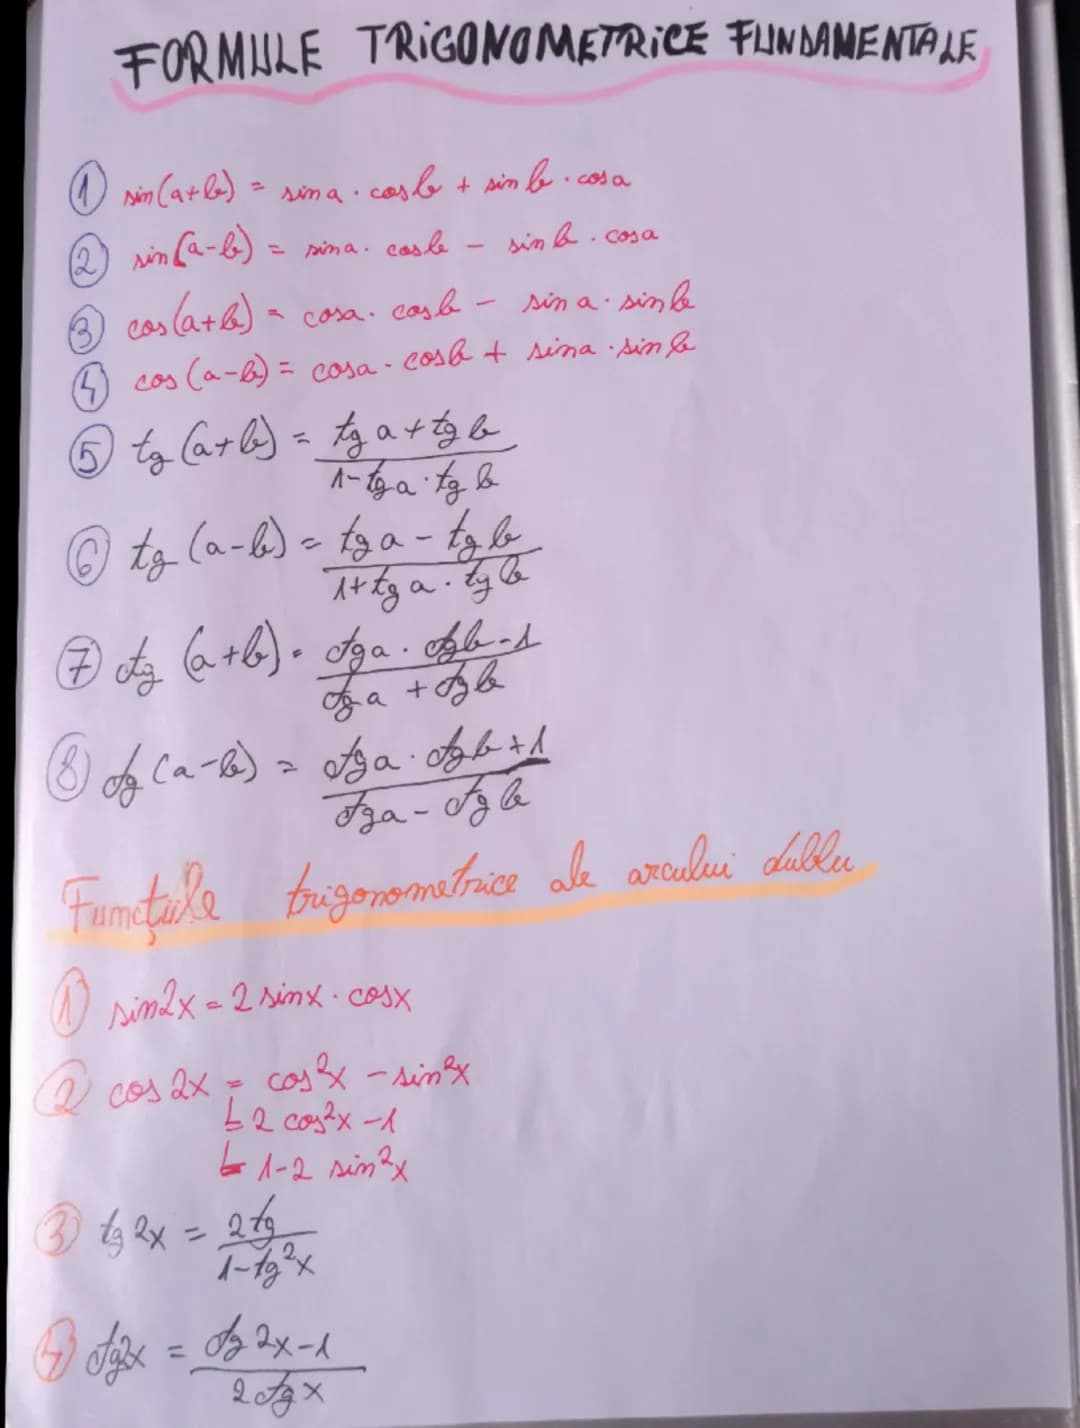 FORMULE TRIGONOMETRICE FUNDAMENTALE
① sin(a+b) = sin a · cos b + sin b · cos a
② sin(a-b) = sin a · cos b - sin b · cos a
③ cos(a+b) = cos a · cos b - sin a · sin b
④ cos(a-b) = cos a · cos b + sin a · sin b
⑤ tg(a+b) = tg a + tg b
1 - tg a · tg b
⑥ tg(a-b) = tg a - tg b
1 + tg a · tg b
⑦ ctg(a+b) = ctg a · ctg b - 1
ctg a + ctg b
⑧ ctg(a-b) = ctg a · ctg b + 1
ctg a - ctg b
Funcțiile trigonometrice ale arcului dublu
① sin2x = 2 sinx · cosx
② cos 2x = cos²x - sin²x
2 cos²x - 1
1 - 2 sin²x
③ tg 2x = 2tg
1 - tg²x
④ ctg2x = ctg 2x - 1
2 ctg x